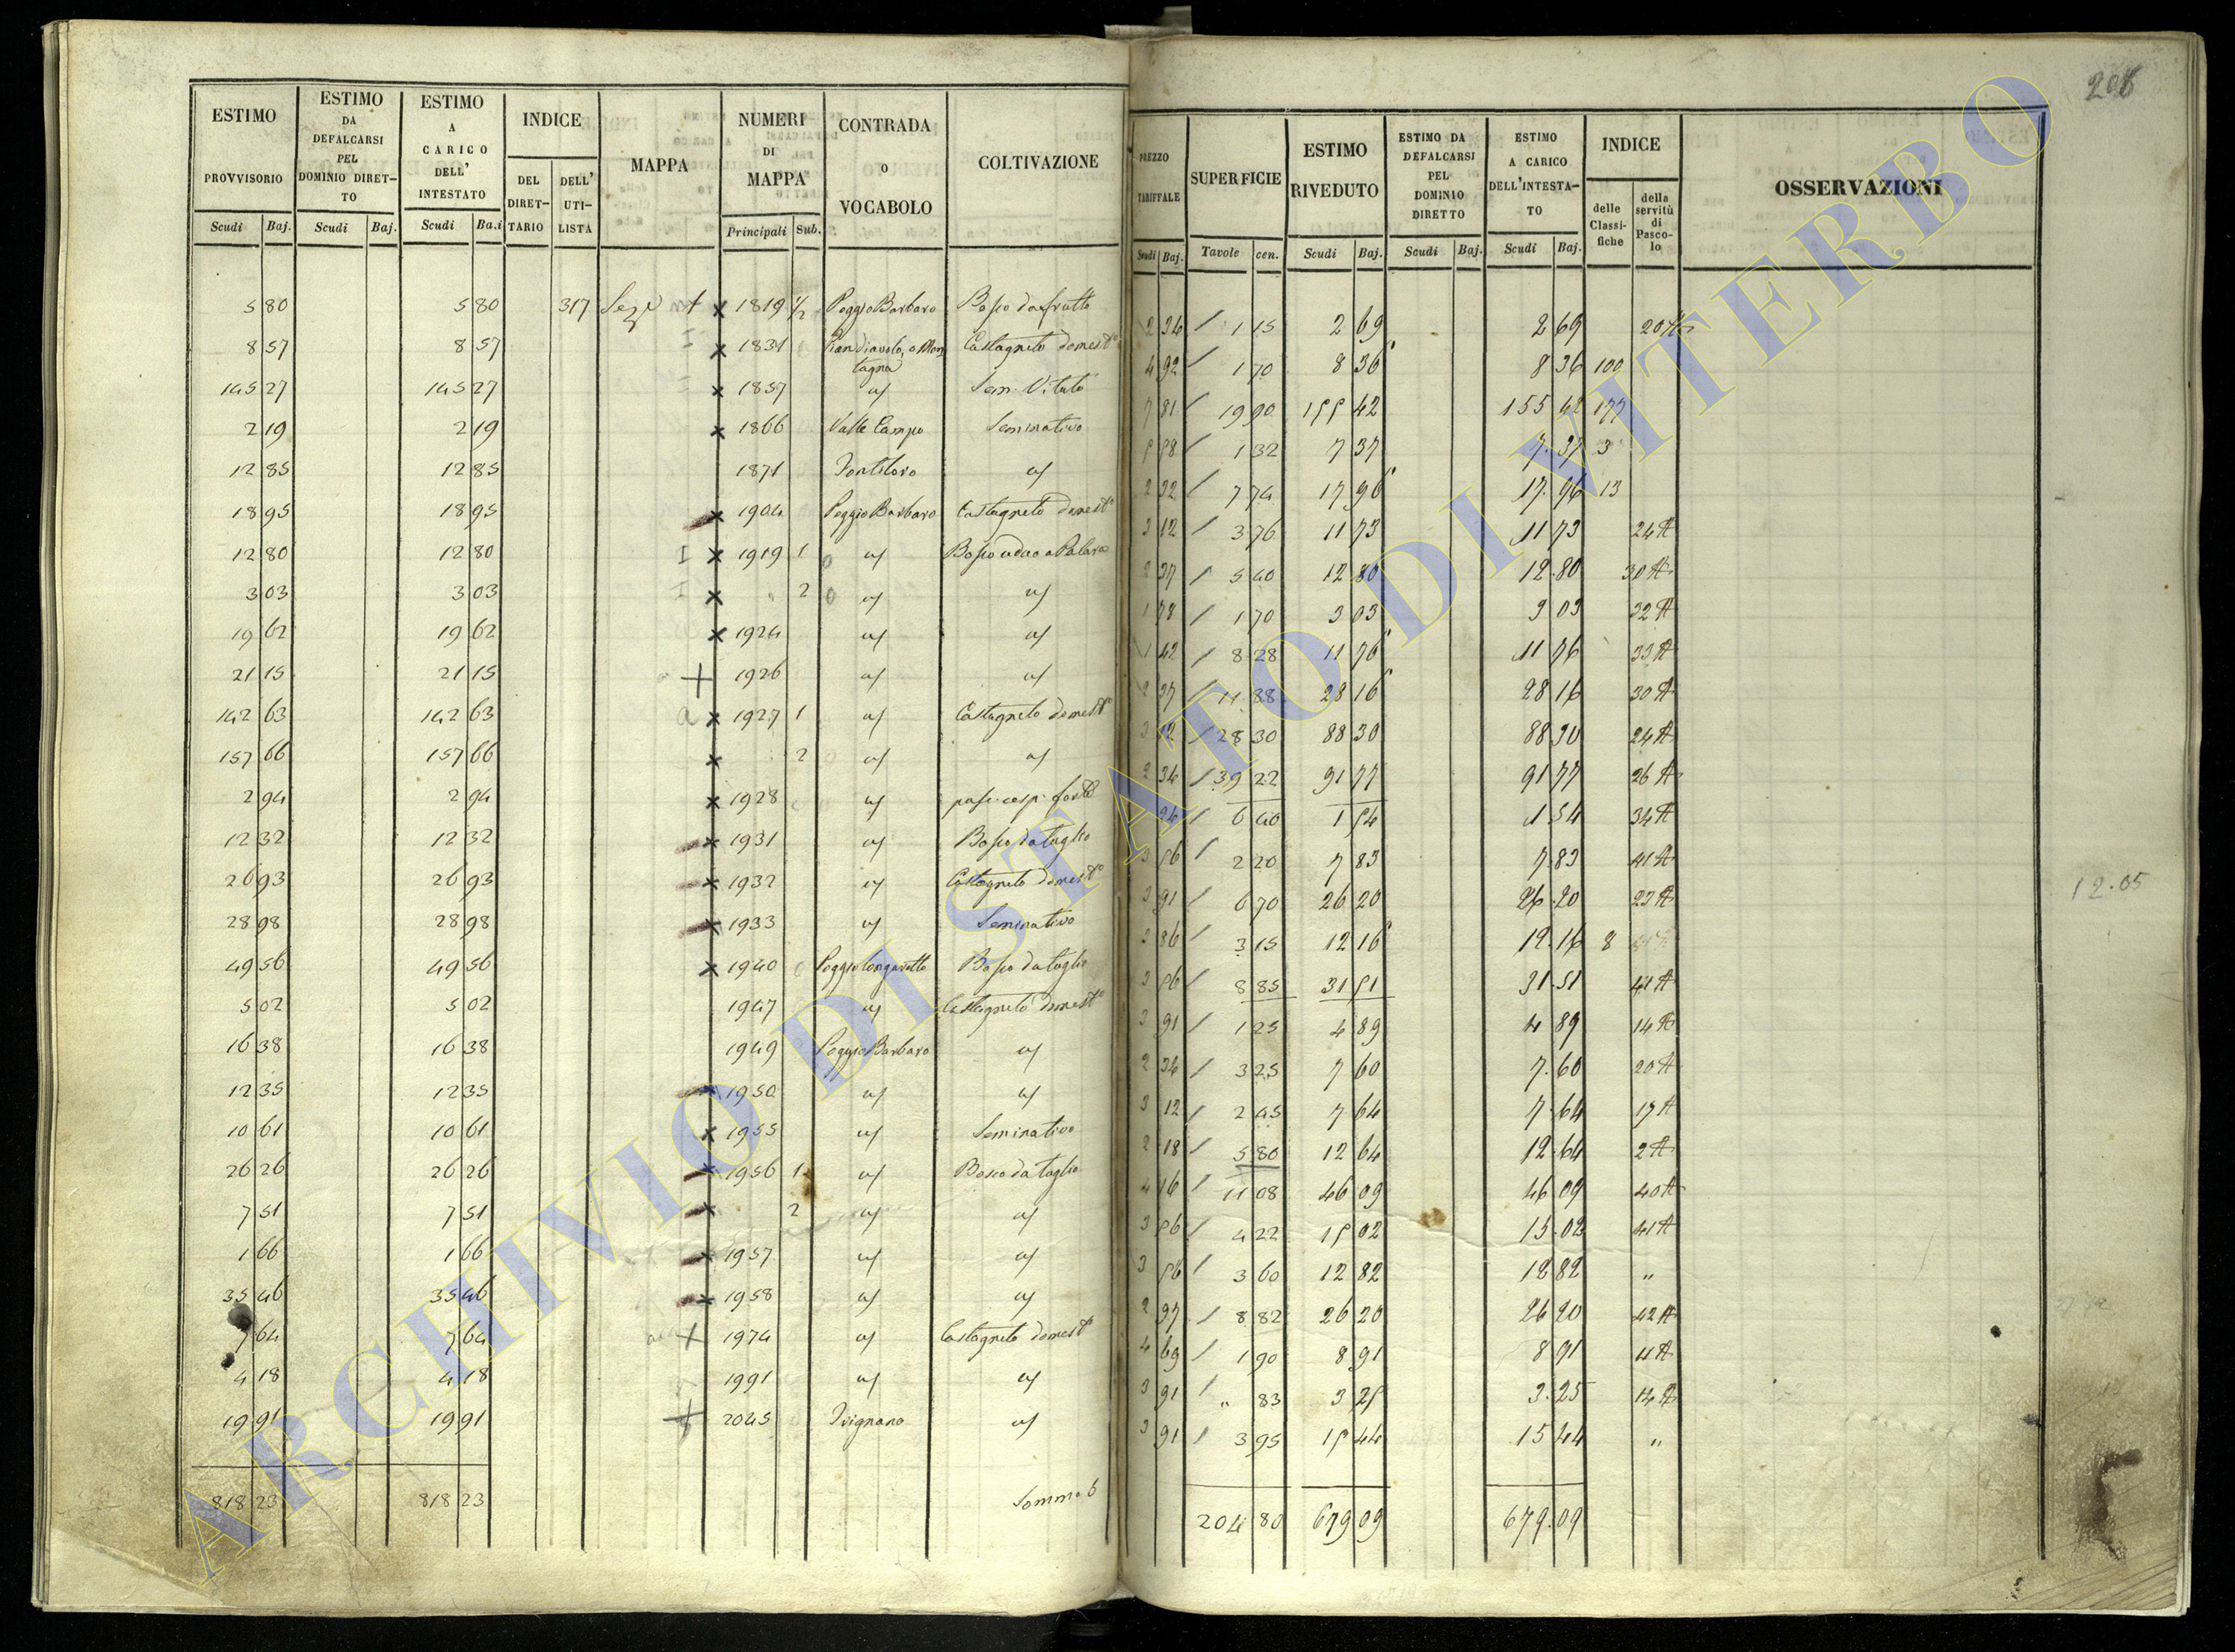 208
ESTIMO PROVVISORIO
ESTIMO DA DEFALCARSI PEL DOMINIO DIRETTO
ESTIMO A CARICO DELL' INTESTATO
INDICE
DEL DIRETTARIO
DELL' UTILISTA
MAPPA
NUMERI DI MAPPA
CONTRADA O VOCABOLO
COLTIVAZIONE
PREZZO TARIFFALE
SUPERFICIE
ESTIMO RIVEDUTO
ESTIMO DA DEFALCARSI PEL DOMINIO DIRETTO
ESTIMO A CARICO DELL'INTESTATO
INDICE
delle Classifiche
della servitù di Pascolo
OSSERVAZIONI
Scudi Baj. Scudi Baj. Scudi Ba.i Principali Sub. Scudi Baj. Tavole cen. Scudi Baj. Scudi Baj. Scudi Baj.
5 80 5 80 317 Sez. x 1819 1/2 Poggio Barbaro Bosco da frutto 2 34 / 1 15 2 69 2 69
8 57 8 57 x 1831 Pian diavolo, o Montagna Castagneto domest.o 4 92 / 1 70 8 36 8 36 100
145 27 145 27 x 1857 Sem. Vitato 7 81 / 19 90 155 42 155 42 177
2 19 2 19 x 1866 Valle Campo Seminativo 5 58 / 1 32 7 37 7.37 3
12 85 12 85 1871 2 32 / 7 74 17 96 17.96 13
18 95 18 95 x 1904 Poggio Barbaro Castagneto domest.o 3 12 / 3 76 11 73 11 73 24 A
12 80 12 80 I x 1919 1 0 2 37 / 5 40 12 80 12.80 30 A
3 03 3 03 I x 2 0 1 78 / 1 70 3 03 3 03 32 A
19 62 19 62 x 1924 1 42 / 8 28 11 76 11 76 33 A
21 15 21 15 + 1926 2 37 / 11 88 28 16 28 16 30 A
142 63 142 63 a x 1927 1 Castagneto domest.o 3 12 / 28 30 88 30 88 30 24 A
157 66 157 66 x 2 2 34 / 39 22 91 77 91 77 26 A
2 94 2 94 x 1928 pasc. cesp. 24 / 6 40 1 54 1 54 34 A
12 32 12 32 x 1931 Bosco da taglio 3 56 / 2 20 7 83 7.83 41 A
26 93 26 93 x 1932 Castagneto domest.o 3 91 / 6 70 26 20 26.20 23 A
28 98 28 98 x 1933 Seminativo 3 86 / 3 15 12 16 12.16 8
49 56 49 56 x 1940 Bosco da taglio 3 56 / 8 85 31 51 31.51 41 A
5 02 5 02 1947 Castagneto domest.o 3 91 / 1 25 4 89 4 89 14 A
16 38 16 38 1949 Poggio Barbaro 2 34 / 3 25 7 60 7.60 20 A
12 35 12 35 x 1950 3 12 / 2 45 7 64 7.64 17 A
10 61 10 61 x 1955 Seminativo 2 18 / 5 80 12 64 12.64 2 A
26 26 26 26 x 1956 1 Bosco da taglio 4 16 / 11 08 46 09 46 09 40 A
7 51 7 51 x 2 3 56 / 4 22 15 02 15.02 41 A
1 66 1 66 x 1957 3 56 / 3 60 12 82 12 82 "
35 46 35 46 x 1958 2 97 / 8 82 26 20 26 20 42 A
7 64 7 64 + 1974 Castagneto domest.o 4 69 / 1 90 8 91 8 91 11 A
4 18 4 18 1991 3 91 / " 83 3 25 3.25 14 A
19 91 19 91 + 2045 Trignano 3 91 / 3 95 15 44 15 44 "
12.05
818 23 818 23 Somma 204 80 679 09 679.09
ARCHIVIO DI STATO DI VITERBO